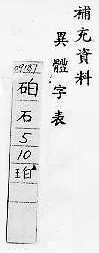 補充資料
異體字表
09187
砶
石
5
10
珀